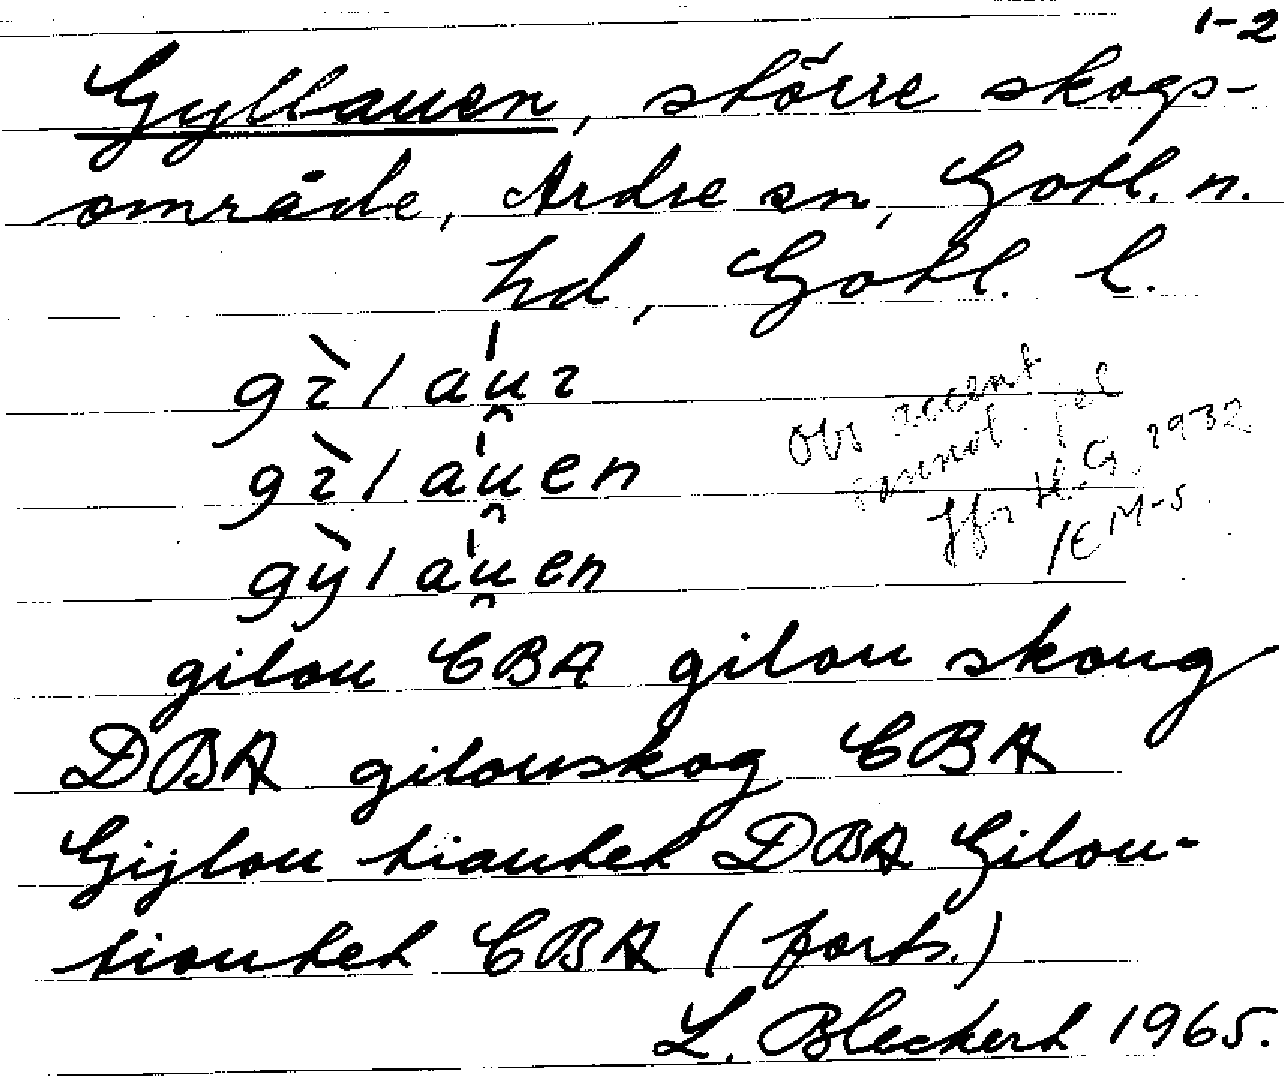 1-2
Gyllauen, större skogs-
område, Ardre sn, Gotl. n.
hd, Gotl. l.
gìláu̯ı
gìláu̯en
gỳláu̯en
Obs accent
fel
H.G. 1932
/EM-S.
gilou CBA gilou skoug
DBA gilouskog CBA
Gijlou tiautet DBA Gilou-
tioutet CBA (forts.)
L. Bleckert 1965.